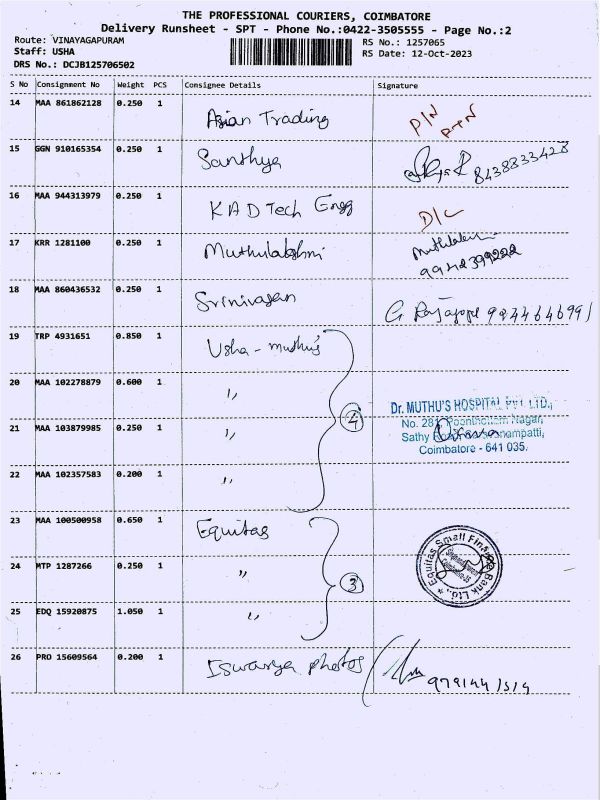 THE PROFESSIONAL COURIERS, COIMBATORE
Delivery Runsheet - SPT - Phone No.:0422-3505555 - Page No.:2
Route: VINAYAGAPURAM RS No.: 1257065
Staff: USHA RS Date: 12-Oct-2023
DRS No.: DCJB125706502
S No Consignment No Weight PCS Consignee Details Signature
14 MAA 861862128 0.250 1 Asian Trading
15 GGN 910165354 0.250 1 Santhya 8438833428
16 MAA 944313979 0.250 1 KAD Tech Engg D/L
17 KRR 1281100 0.250 1 Muthulakshmi
18 MAA 860436532 0.250 1 Srinivasan G Rajagopal 9244646991
19 TRP 4931651 0.850 1 Usha - muthu's
20 MAA 102278879 0.600 1 "
21 MAA 103879985 0.250 1 " 4
22 MAA 102357583 0.200 1 "
Dr. MUTHU'S HOSPITAL PVT LTD.,
No. 281, Poonthottam Nagar,
Sathy
Coimbatore - 641 035.
23 MAA 100500958 0.650 1 Equitas
24 MTP 1287266 0.250 1 " 3
25 EDQ 15920875 1.050 1 "
Equitas Small Finance Bank Ltd.,
26 PRO 15609564 0.200 1 Iswarya photos